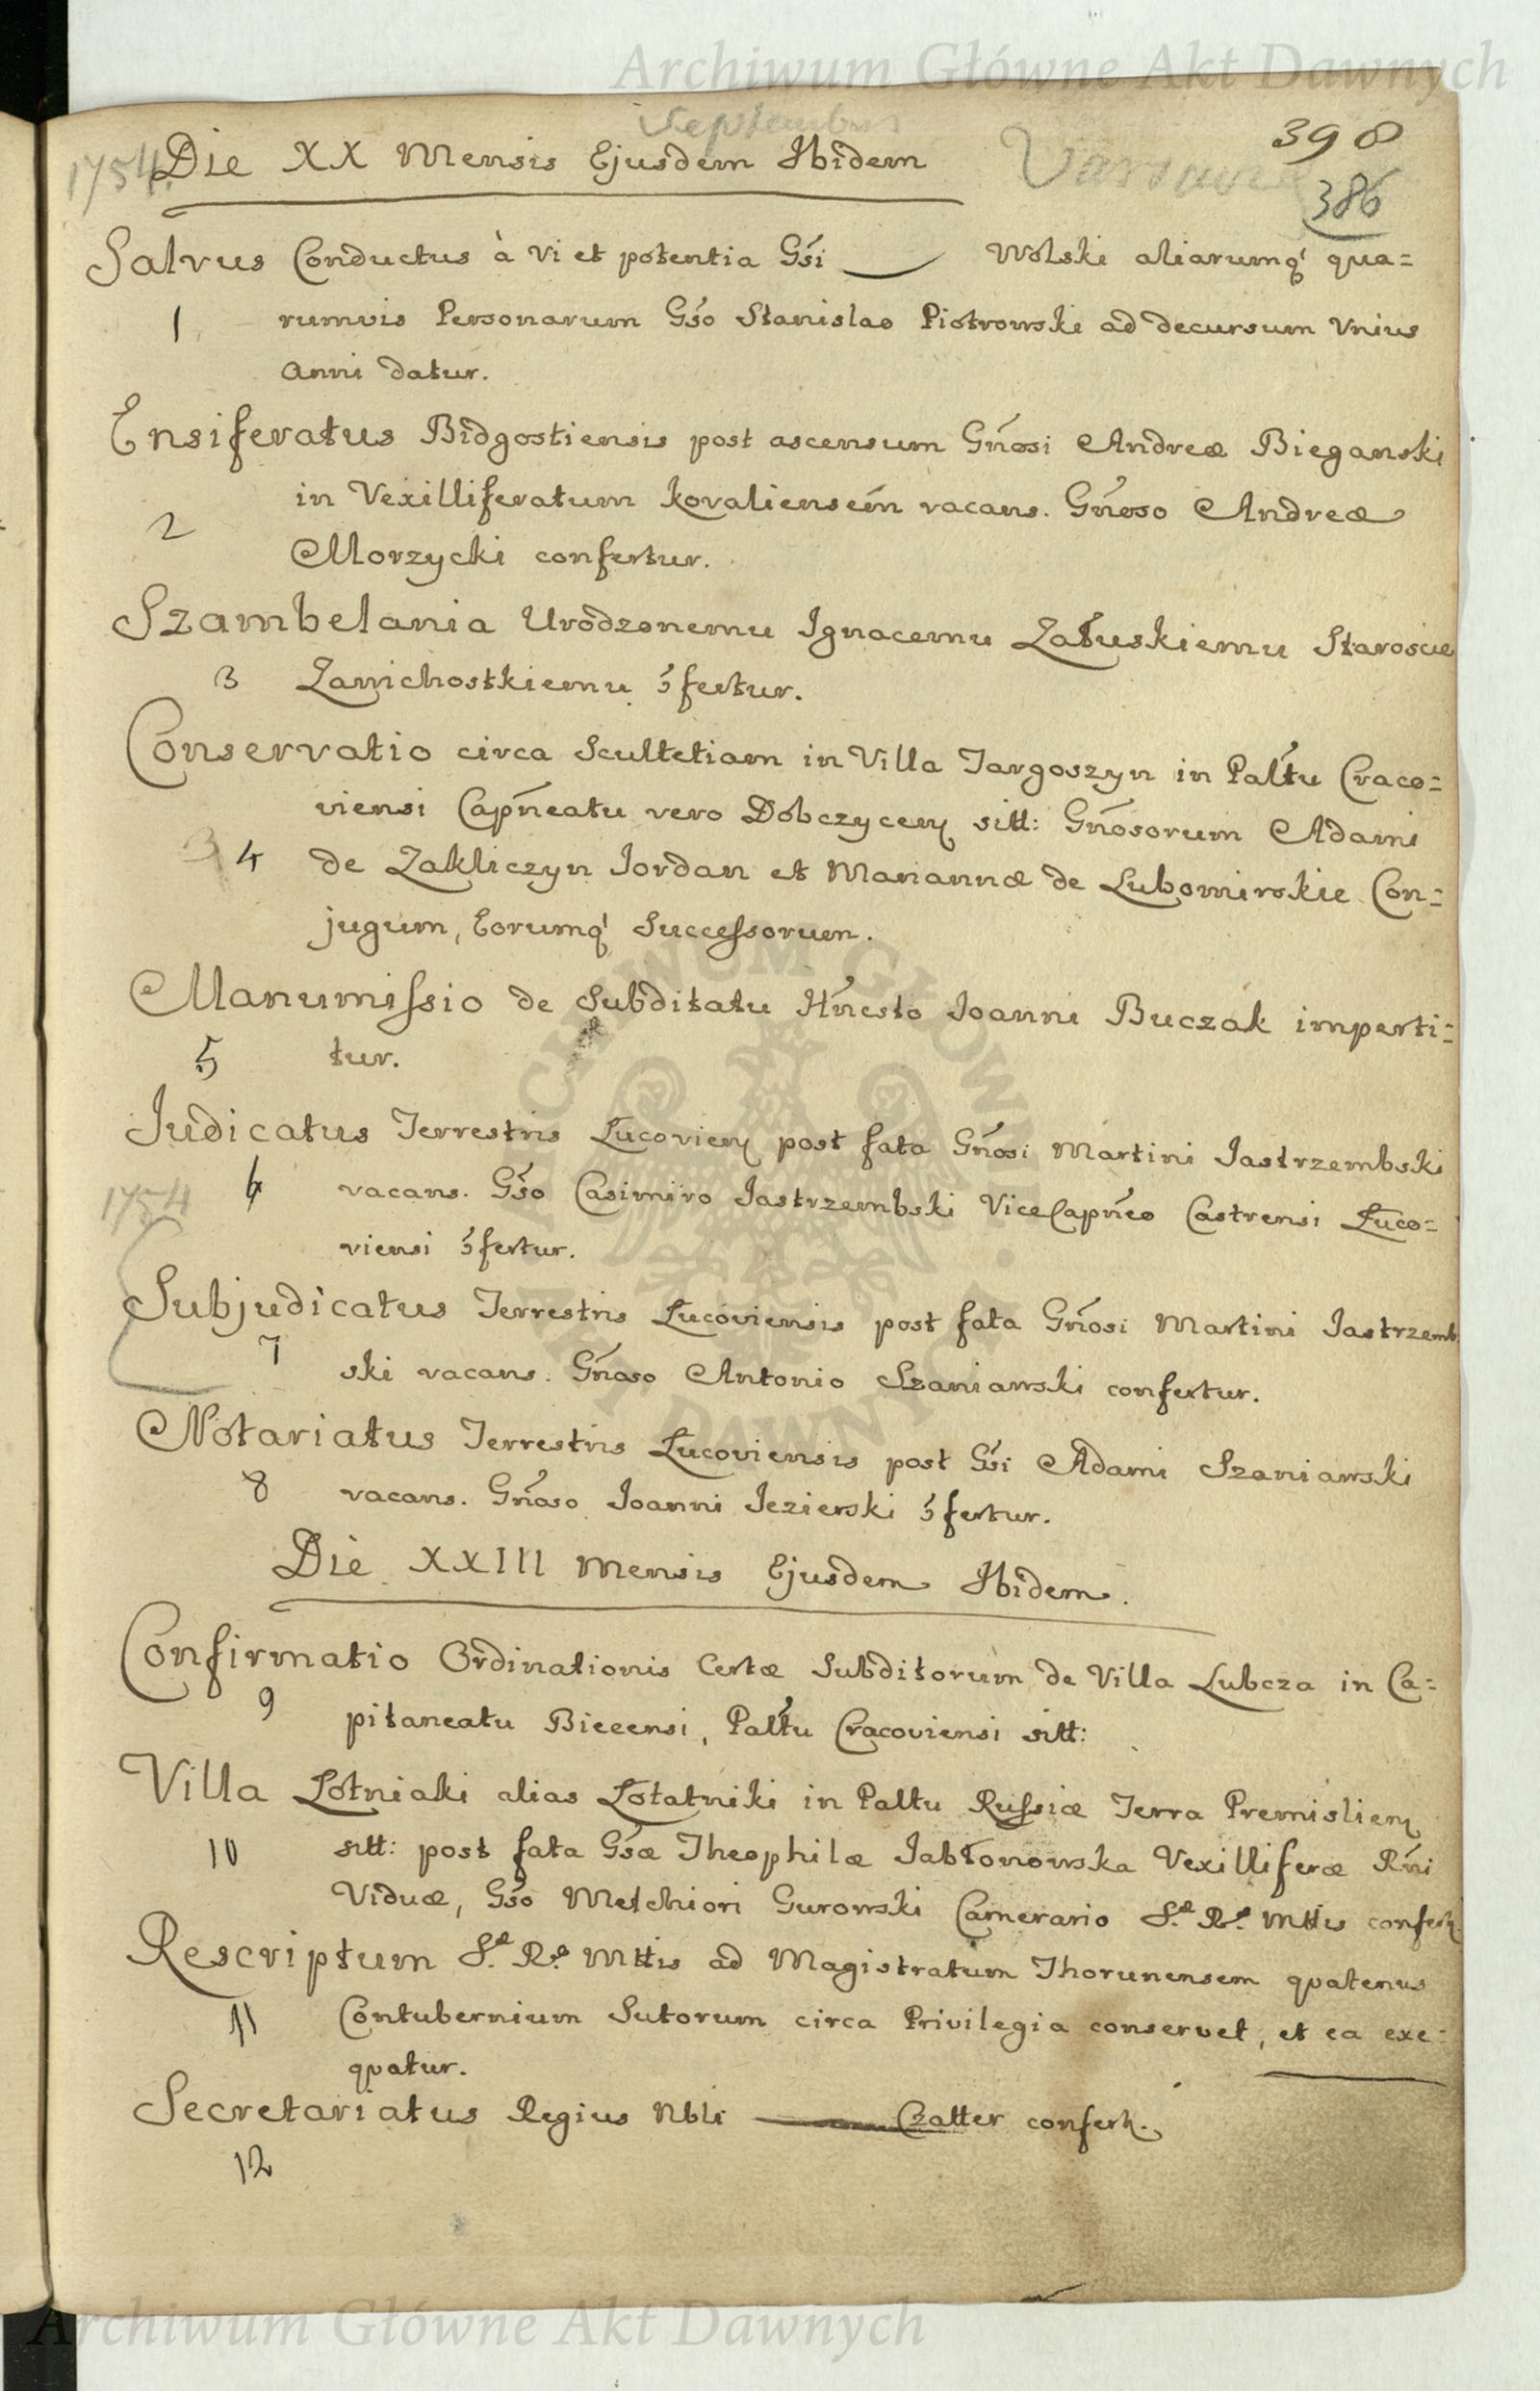 Archiwum Główne Akt Dawnych
Septembris
1754. Die XX Mensis Ejusdem Ibidem
398
386
Salvus Conductus à vi et potentia Gsi — Wolski aliarumq́ qua=
1 rumvis Personarum Gso Stanislao Piotrowski ad decursum Unius
anni datur.
Ensiferatus Bidgostiensis post ascensum Gnosi Andreæ Bieganski
in Vexilliferatum Kovaliensem vacans. Gnoso Andreæ
2 Morzycki confertur.
Szambelania Urodzonemu Ignacemu Załuskiemu Staroscie
3 Zawichostkiemu ɔfertur.
Conservatio circa Scultetiam in Villa Targoszyn in Palttu Craco=
viensi Capneatu vero Dobczycen sitt: Gnosorum Adami
3 4 de Zakliczyn Jordan et Mariannæ de Lubomirskie Con=
jugum, Eorumq́ Successorum.
Manumissio de Subditatu Hnesto Joanni Buczak imperti=
5 tur.
Judicatus Terrestris Lucovien post fata Gnosi Martini Jastrzembski
1754 6 vacans. Gso Casimiro Jastrzembski ViceCapneo Castrensi Łuco=
viensi ɔfertur.
Subjudicatus Terrestris Lucoviensis post fata Gnosi Martini Jastrzemb
7 ski vacans. Gnoso Antonio Szaniawski confertur.
Notariatus Terrestris Lucoviensis post Gsi Adami Szaniawski
8 vacans. Gnoso Joanni Jezierski ɔfertur.
Die XXIII Mensis Ejusdem Ibidem.
Confirmatio Ordinationis Certæ Subditorum de Villa Lubcza in Ca=
9 pitaneatu Biecensi, Palttu Cracoviensi sitt:
Villa Łotniaki alias Łotatniki in Palttu Russiæ Terra Premislien
10 sitt: post fata Gsæ Theophilæ Jabłonowska Vexilliferæ Rni
Viduæ, Gso Melchiori Gurowski Camerario S. R. Mttis confert.
Rescriptum S. R. Mttis ad Magistratum Thorunensem quatenus
11 Contubernium Sutorum circa Privilegia conservet, et ea exe=
quatur.
Secretariatus Regius Nbli — Czatter confert.
12
ARCHIWUM GŁÓWNE AKT DAWNYCH
Archiwum Główne Akt Dawnych